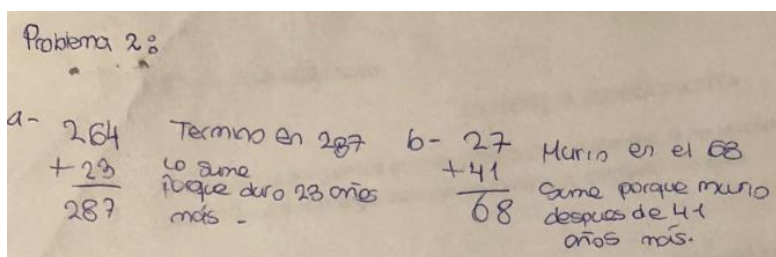 Problema 2:
a- 264
+ 23
287
Termino en 287
Lo sume
porque duro 23 años
más -
b- 27
+41
68
Murio en el 68
sume porque murio
despues de 41
años más.